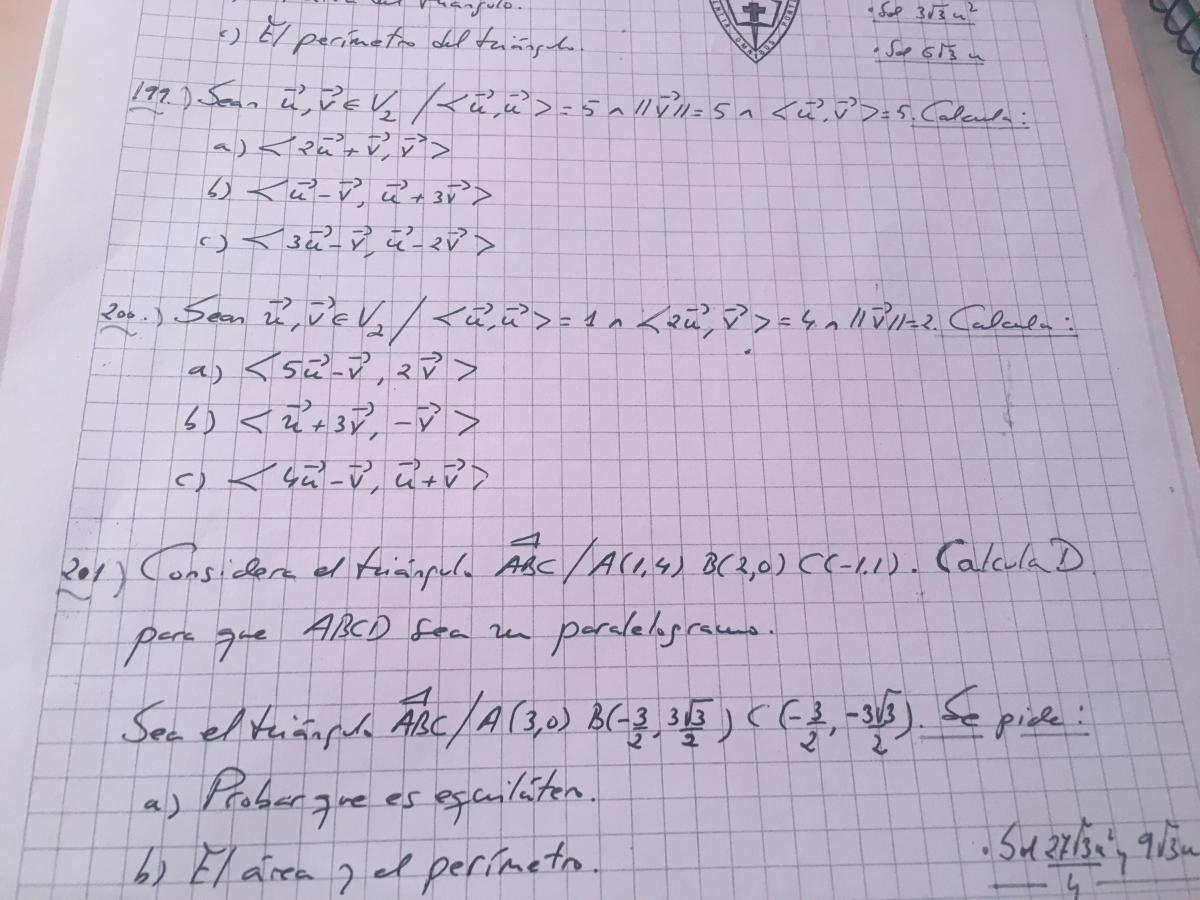 del triángulo.
c) El perímetro del triángulo.
· Sol 3√3 u²
· Sol 6√3 u
199.) Sean u⃗, v⃗ ∈ V₂ / <u⃗, u⃗> = 5 ∧ ||v⃗|| = 5 ∧ <u⃗, v⃗> = 5. Calcula:
a) <2u⃗ + v⃗, v⃗>
b) <u⃗ - v⃗, u⃗ + 3v⃗>
c) <3u⃗ - v⃗, u⃗ - 2v⃗>
200.) Sean u⃗, v⃗ ∈ V₂ / <u⃗, u⃗> = 1 ∧ <2u⃗, v⃗> = 4 ∧ ||v⃗|| = 2. Calcula:
a) <5u⃗ - v⃗, 2v⃗>
b) <u⃗ + 3v⃗, -v⃗>
c) <4u⃗ - v⃗, u⃗ + v⃗>
201) Considera el triángulo ABC / A(1,4) B(2,0) C(-1,1). Calcula D
para que ABCD sea un paralelogramo.
Sea el triángulo ABC / A(3,0) B(-3/2, 3√3/2) C(-3/2, -3√3/2). Se pide:
a) Probar que es equilátero.
b) El área y el perímetro.
· Sol 27√3/4 u² y 9√3 u